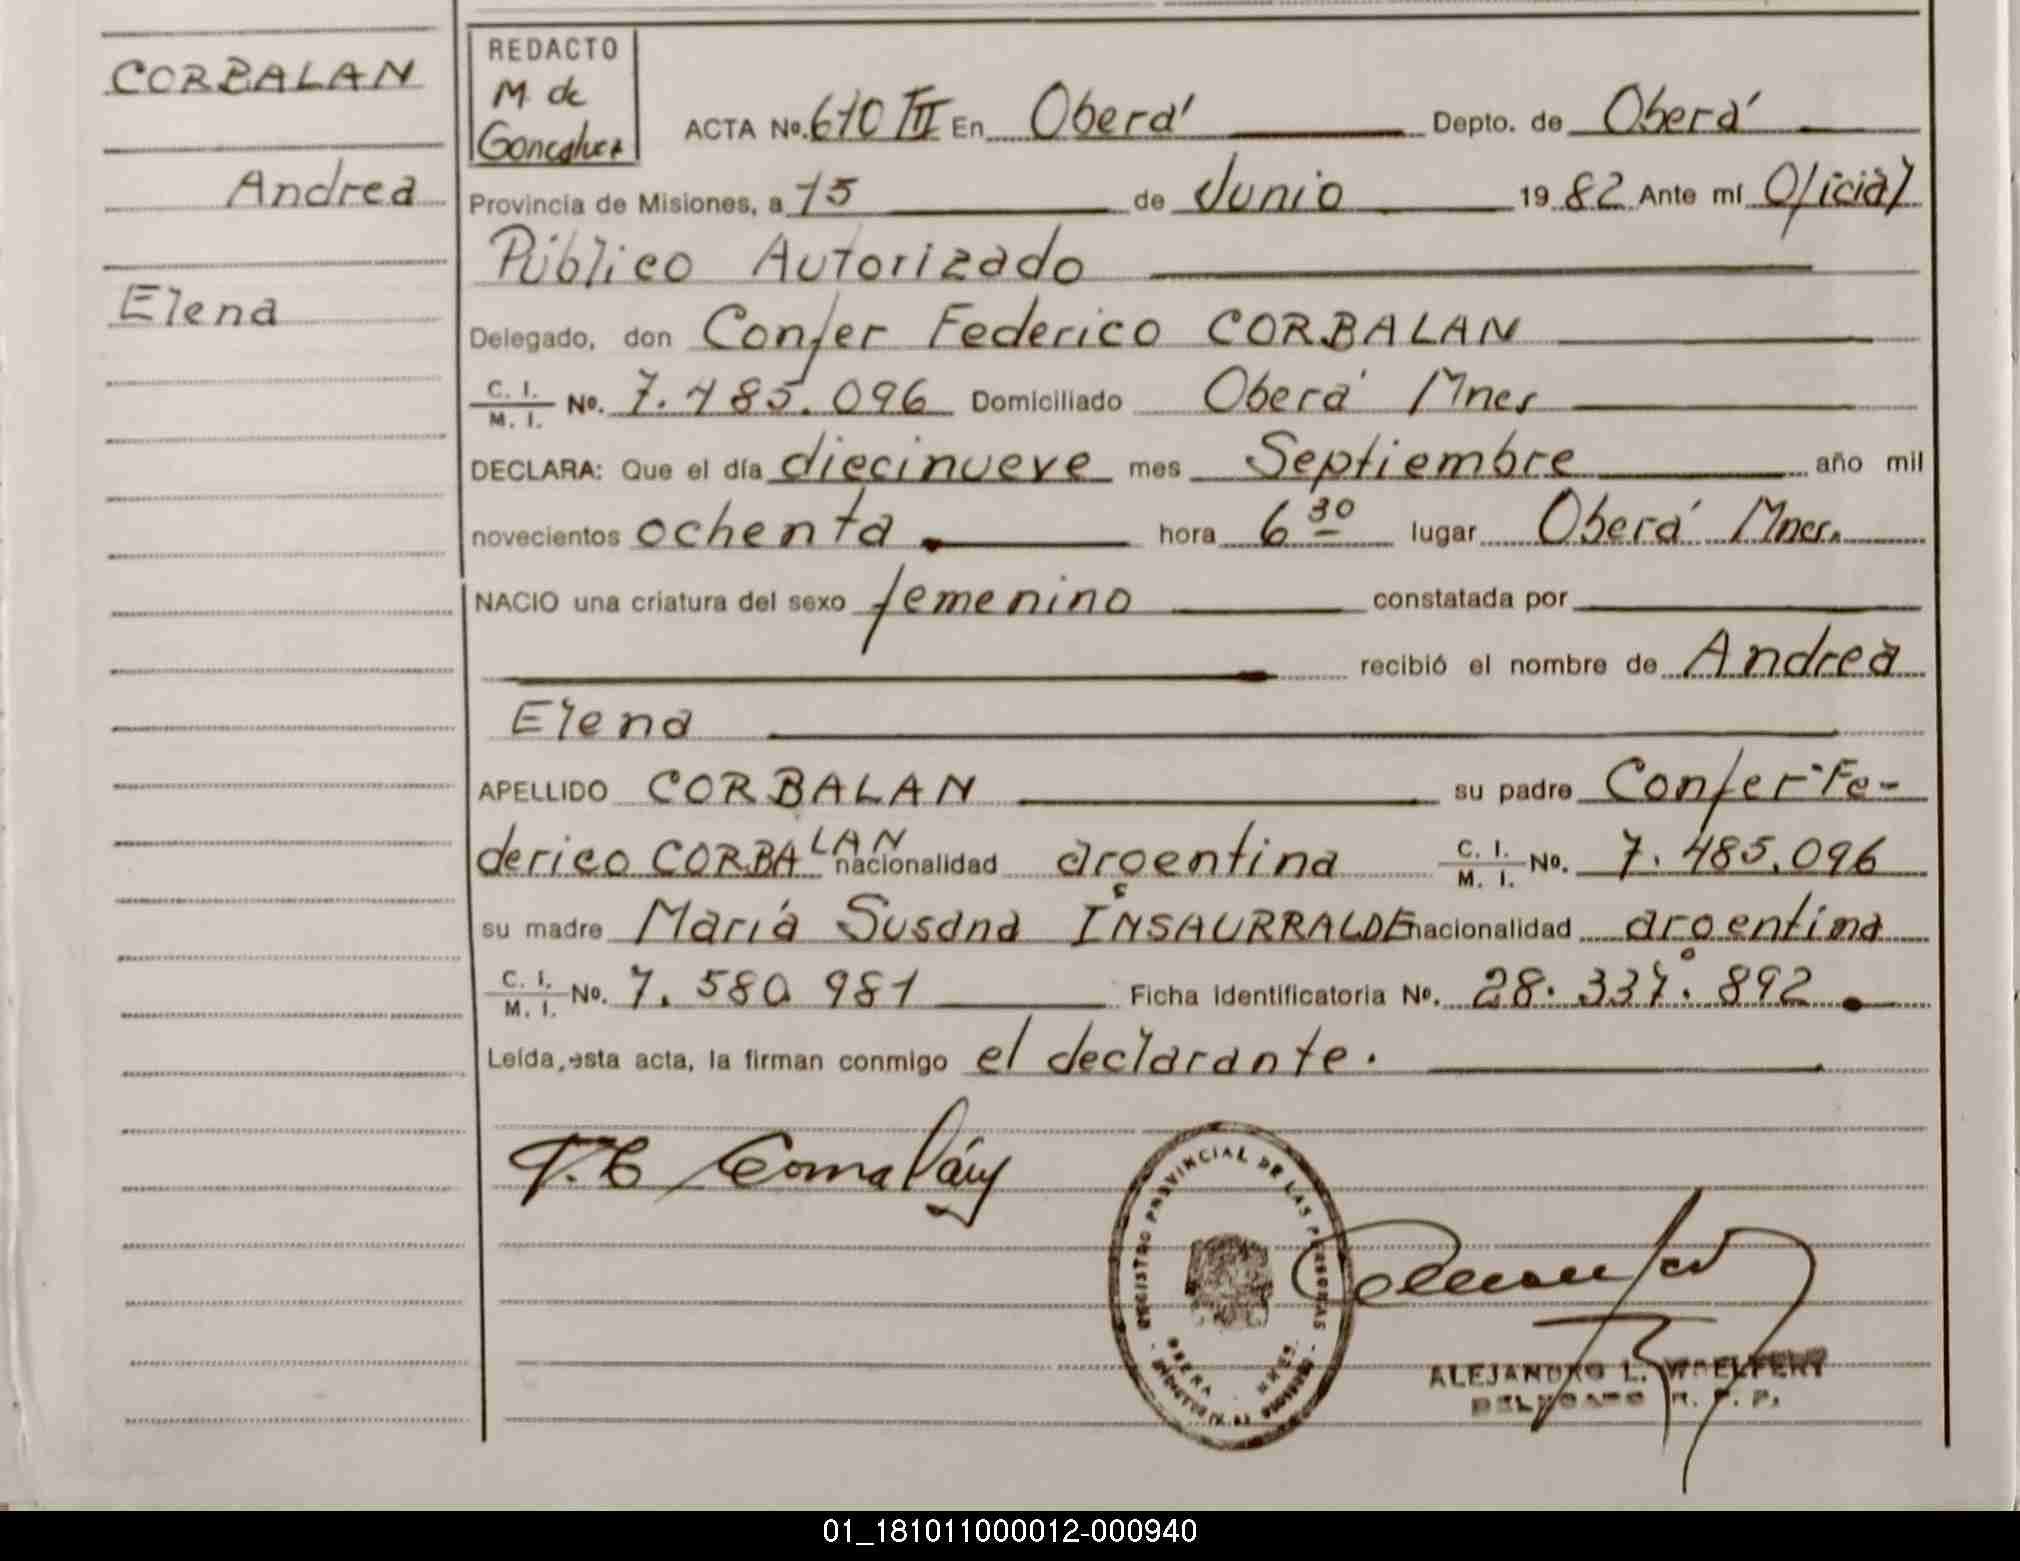 CORBALAN
Andrea
Elena
REDACTO
M. de
Goncalvez
ACTA No. 610 III En Oberá Depto. de Oberá
Provincia de Misiones, a 15 de Junio 1982 Ante mí Oficial
Público Autorizado
Delegado, don Confer Federico CORBALAN
C. I. / M. I. No. 7.485.096 Domiciliado Oberá Mnes
DECLARA: Que el día diecinueve mes Septiembre año mil
novecientos ochenta hora 6 30 lugar Oberá Mnes.
NACIO una criatura del sexo femenino constatada por
recibió el nombre de Andrea
Elena
APELLIDO CORBALAN su padre Confer Fe-
derico CORBALAN nacionalidad argentina C. I. / M. I. No. 7.485.096
su madre María Susana INSAURRALDE nacionalidad argentina
C. I. / M. I. No. 7.580.981 Ficha identificatoria No. 28.337.892
Leída, esta acta, la firman conmigo el declarante.
REGISTRO PROVINCIAL DE LAS PERSONAS
OBERA MNES.
ALEJANDRO L. WOELFERT
DELEGADO R. P. P.
01_181011000012-000940